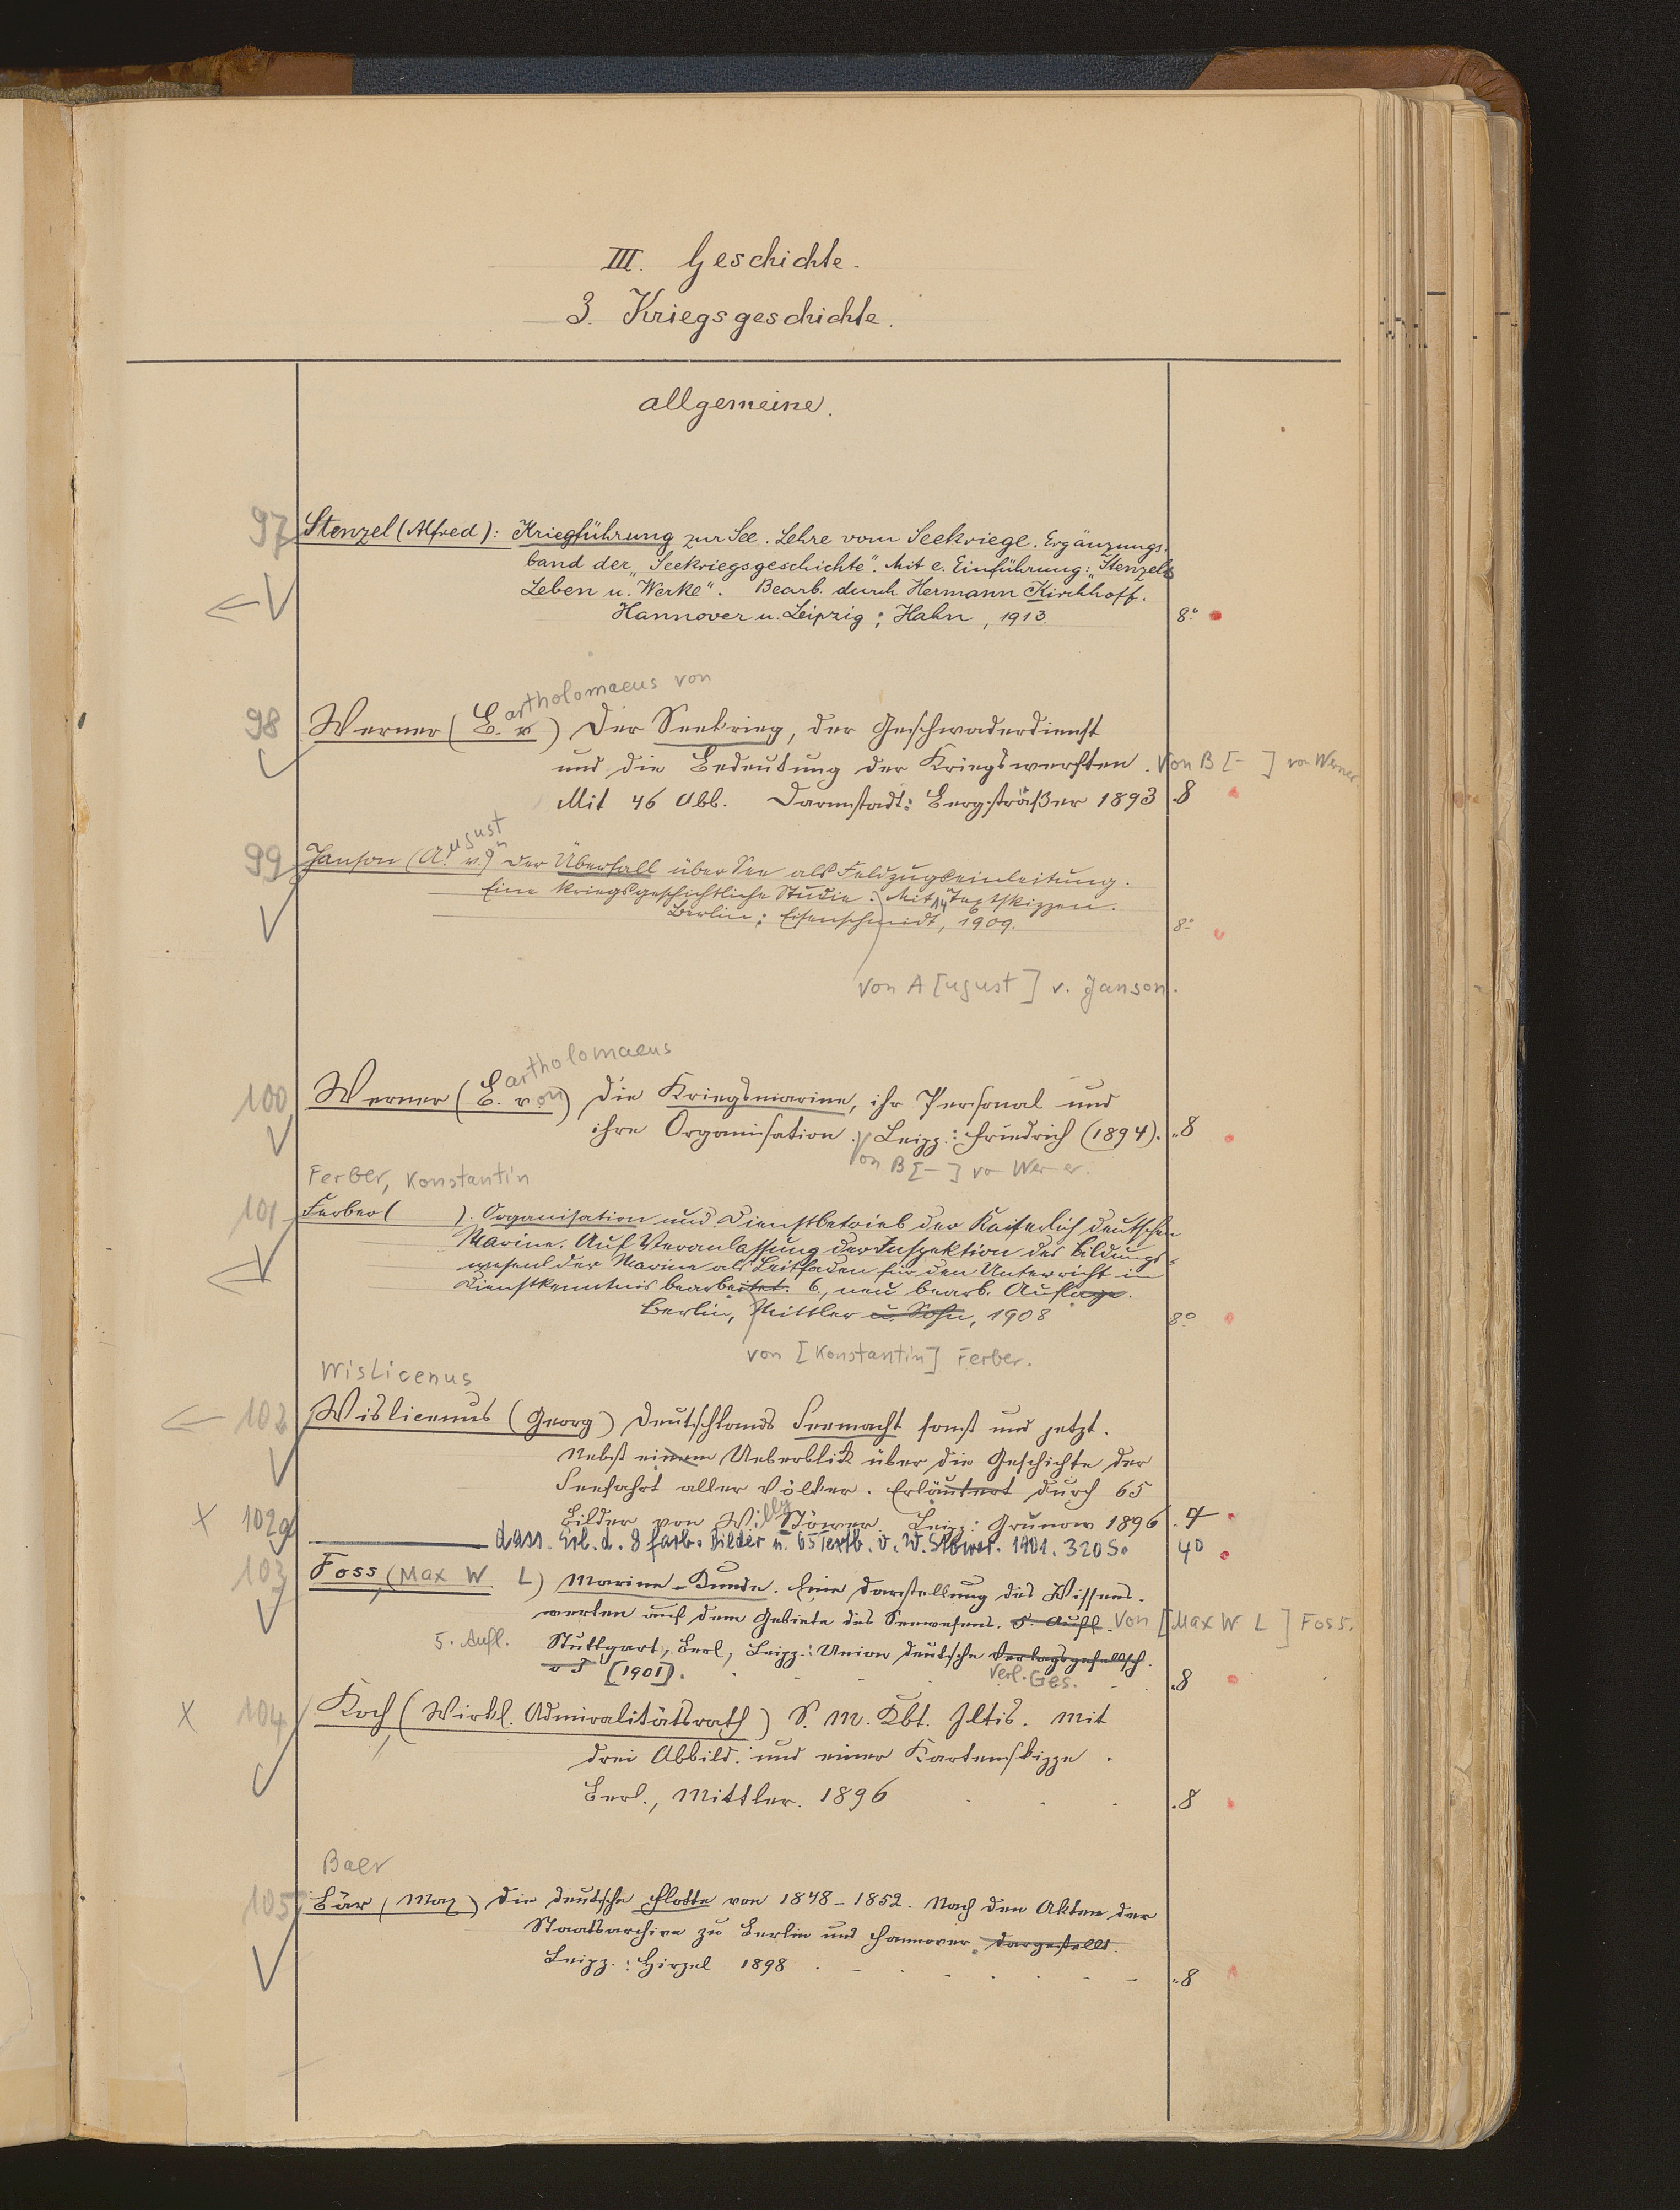 III. Geschichte.
3. Kriegsgeschichte.
allgemeine.
97 Stenzel (Alfred): Kriegführung zur See. Lehre vom Seekriege. Ergänzungs-
band der „Seekriegsgeschichte". Mit e. Einführung: „Stenzels
Leben u. Werke". Bearb. durch Hermann Kirchhoff.
Hannover u. Leipzig: Hahn, 1913. 8°
artholomaeus von
98 Werner (B. v.) Der Seekrieg, der Geschwaderdienst
und die Bedeutung der Kriegswerften. Von B [-] von Werner
Mit 46 Abb. Darmstadt: Bergsträßer 1893 .8
ugust
99 Janson (A. v.) Der Überfall über See als Feldzugseinleitung.
Eine kriegsgeschichtliche Studie. Mit 14 Textskizzen.
Berlin: Eisenschmidt, 1909. 8°
Von A [ugust] v. Janson.
artholomaeus
100 Werner (B. von) Die Kriegsmarine, ihr Personal und
ihre Organisation. Leipz.: Friedrich (1894). .8
Von B [-] von Werner.
Ferber, Konstantin
101 Ferber ( ). Organisation und Dienstbetrieb der Kaiserlich deutschen
Marine. Auf Veranlassung der Inspektion des Bildungs-
wesens der Marine als Leitfaden für den Unterricht in
Dienstkenntnis bearbeitet. 6., neu bearb. Auflage.
Berlin, Mittler u. Sohn, 1908 8°
von [Konstantin] Ferber.
Wislicenus
102 Wislicenus (Georg) Deutschlands Seemacht sonst und jetzt.
Nebst einem Ueberblick über die Geschichte der
Seefahrt aller Völker. Erläutert durch 65
Bilder von Willy Stöwer. Leipz: Grunow 1896 .4
X 102a dass. Erl. d. 8 farb. Bilder u. 65 Textb. v. W. Stöwer. 1901. 320 S. 4°
103 Foss, (Max W L) Marine-Kunde. Eine Darstellung des Wissens-
werten auf dem Gebiete des Seewesens. 5. Aufl. Von [Max W L] Foss.
5. Aufl. Stuttgart, Berl, Leipz.: Union deutsche Verlagsgesellsch.
o J [1901]. Verl. Ges. .8
X 104 Koch, (Wirkl. Admiralitätsrath) S. M. Kbt. Iltis. Mit
drei Abbild. und einer Kartenskizze.
Berl., Mittler. 1896 .8
Baer
105 Bär (Max) Die deutsche Flotte von 1848-1852. Nach den Akten der
Staatsarchive zu Berlin und Hannover dargestellt.
Leipz.: Hirzel 1898 .8